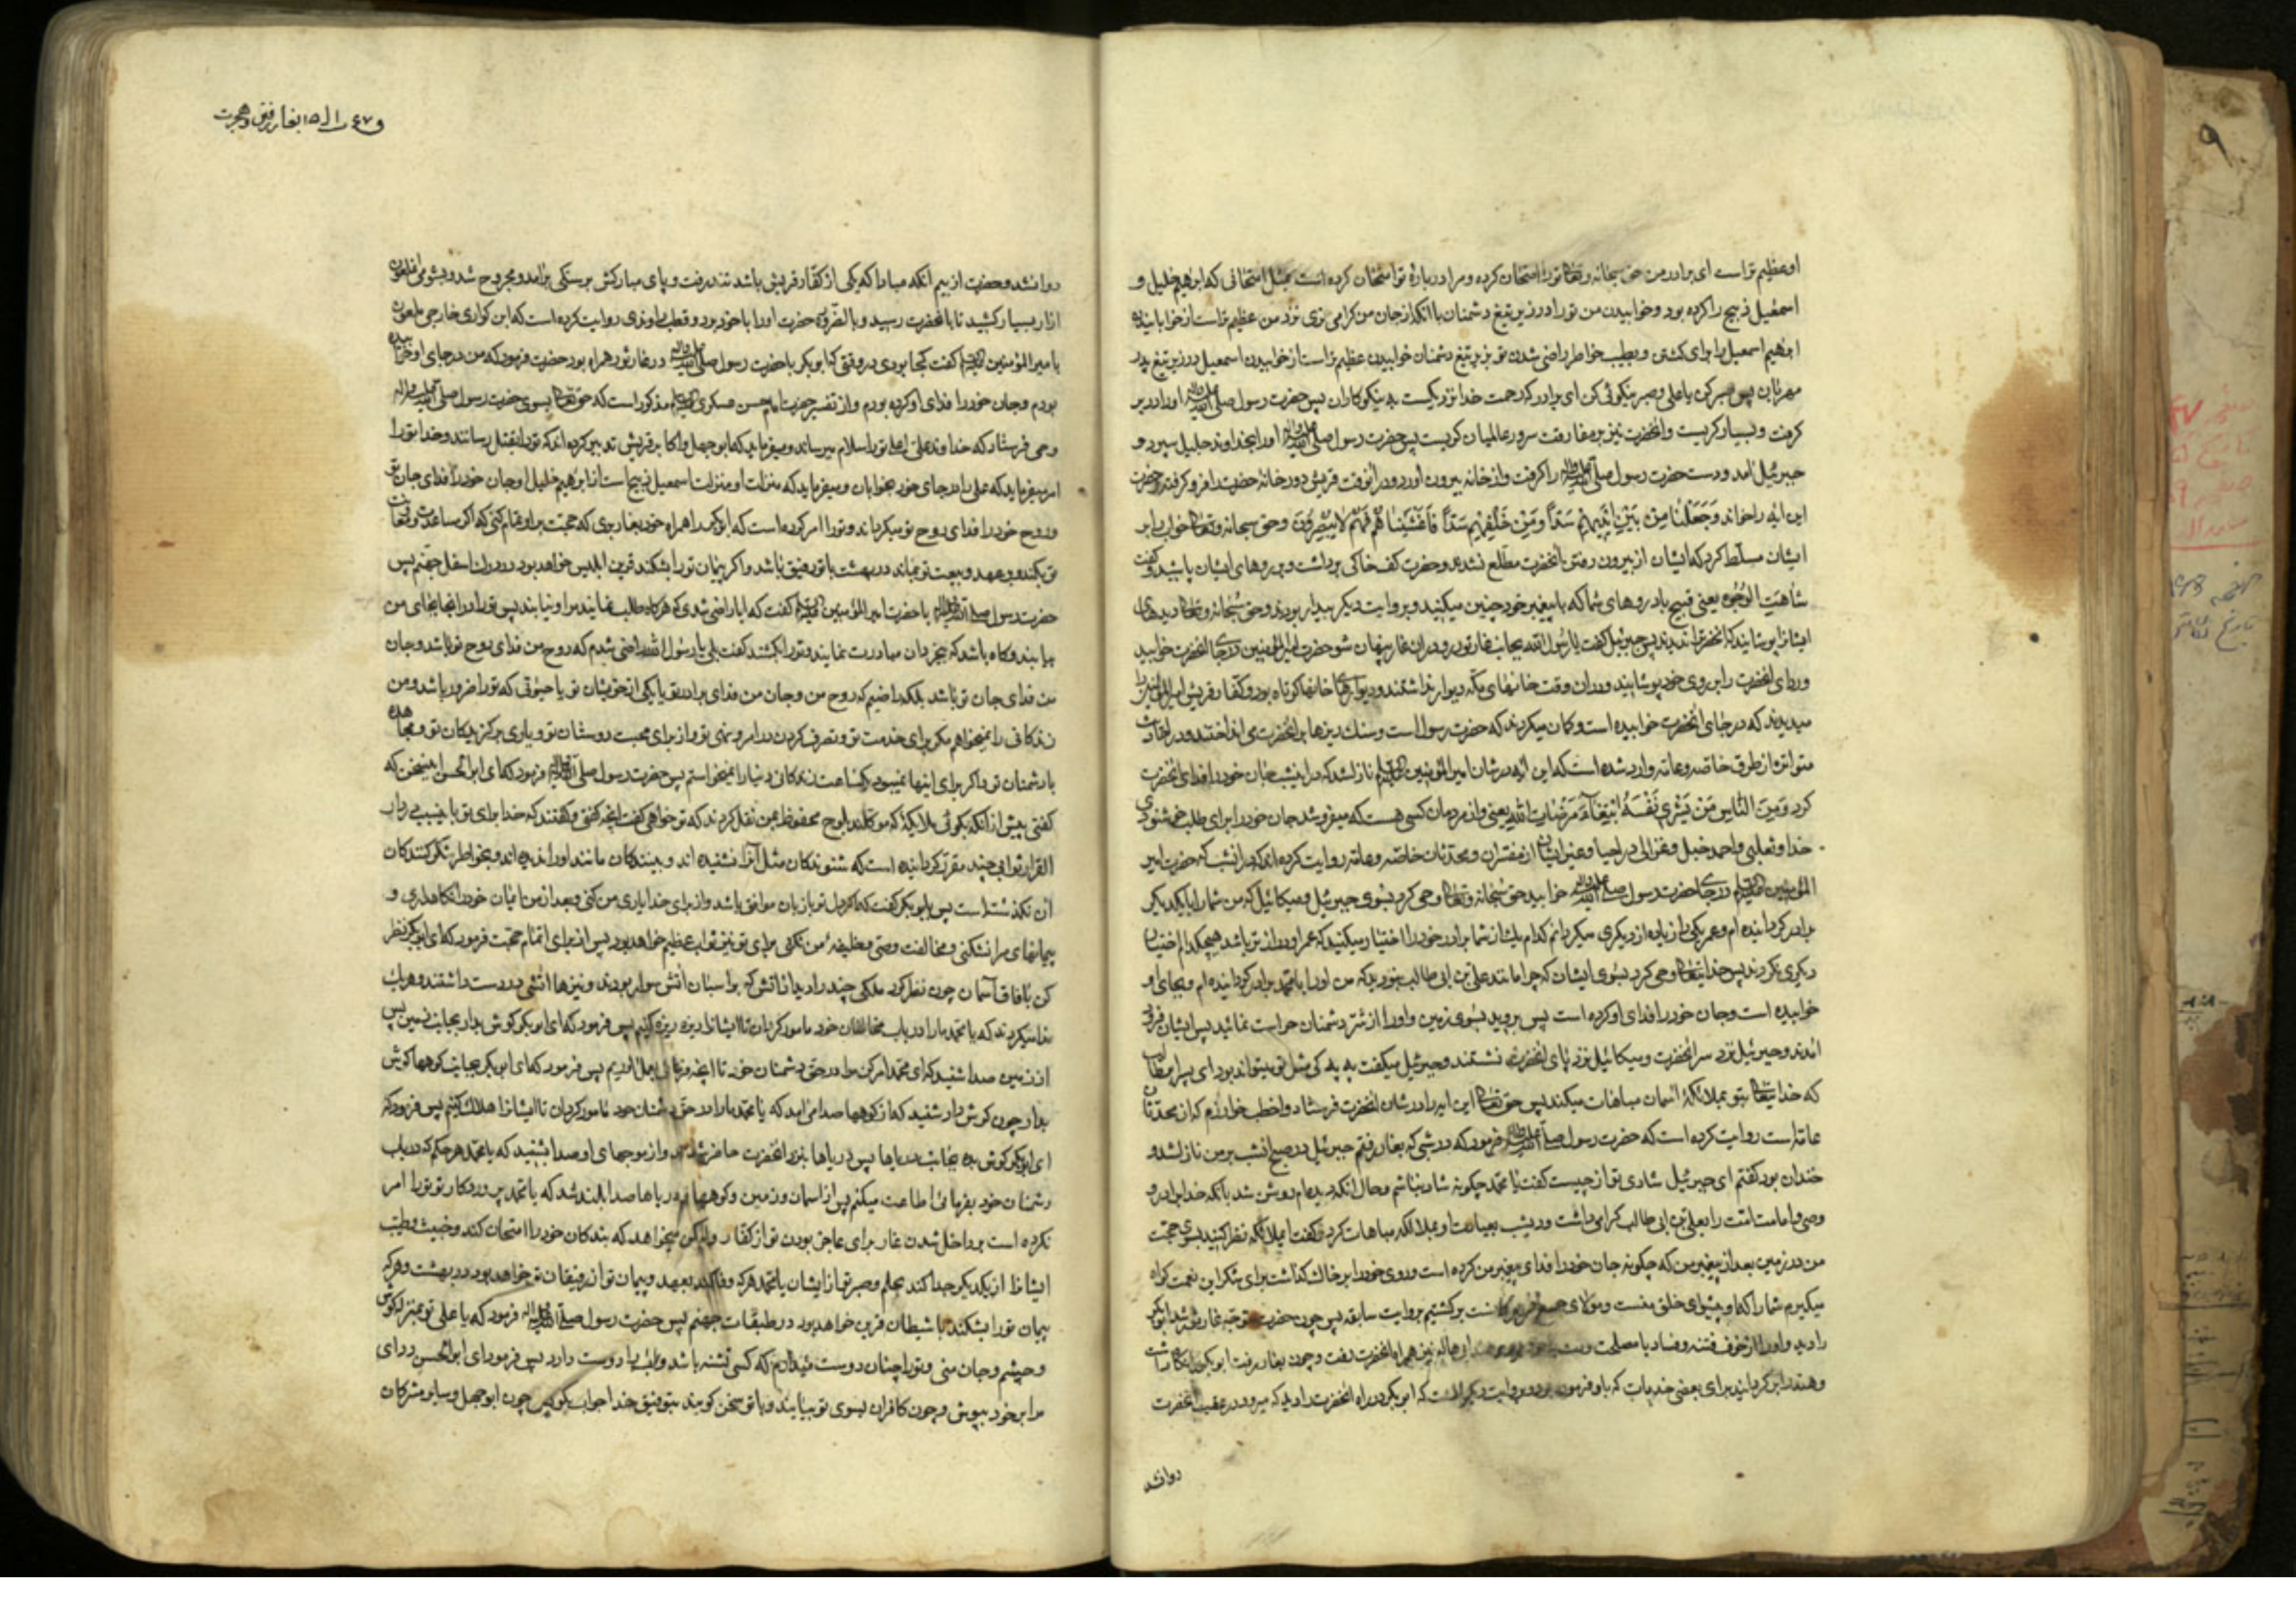 او عظیم تر است ای برادر من حق سبحانه وتعالی تو را امتحان کرده و مرا در بارهٔ تو امتحان کرده است بمثل امتحانی که ابرهیم خلیل و
اسمعیل ذبیح را کرده بود و خوابیدن من تو را در زیر تیغ دشمنان با آنکه از جان من گرامی تری نزد من عظیم تر است از خوابانیدن
ابرهیم اسمعیل را برای کشتن و بطیب خاطر راضی شدن تو بزیر تیغ دشمنان خوابیدن عظیم تر است از خوابیدن اسمعیل در زیر تیغ پدر
مهربان پس صبر کن یا علی و صبر نیکوئی کن ای برادر که رحمت خدا نزدیکست به نیکوکاران پس حضرت رسول صلی الله علیه واله او را در بر
کرفت و بسیار کریست و آنحضرت نیز بر مفارقت سرور عالمیان کریست پس حضرت رسول صلی الله علیه واله او را بخداوند جلیل سپرد و
جبرئیل آمد و دست حضرت رسول صلی الله علیه واله را کرفت و از خانه بیرون آورد و در آنوقت قریش دور خانهٔ حضرت را فرو کرفته حضرت
این آیه را خواند وَجَعَلْنَا مِنْ بَیْنِ اَیْدِیهِمْ سَدّاً وَمِنْ خَلْفِهِمْ سَدّاً فَاَغْشَیْنَاهُمْ فَهُمْ لَا یُبْصِرُونَ و حق سبحانه وتعالی خواب را بر
ایشان مسلّط کرد که ایشان از بیرون رفتن آنحضرت مطّلع نشدند و حضرت کف خاکی برداشت و بر روهای ایشان پاشید و کفت
شَاهَتِ الْوُجُوه یعنی قبیح باد روهای شما که با پیغمبر خود چنین میکنید و بروایت دیکر بیدار بودند و حق سبحانه وتعالی دیدهای
ایشانرا پوشانید که آنحضرترا ندیدند پس جبرئیل کفت یا رسول الله بجانب غار ثور رو و در آن غار پنهان شو حضرت امیر المؤمنین در جای آنحضرت خوابید
و ردای آنحضرت را بر روی خود پوشانید و در آن وقت خانهای مکّه دیوار نداشتند و دیوارهای خانها کوتاه بود و کفار قریش امیر المؤمنین را
میدیدند که در جای آنحضرت خوابیده است و کمان میکردند که حضرت رسول است و سنک ریزها بر آنحضرت می انداختند و در احادیث
متواتره از طرق خاصّه و عامّه وارد شده است که این آیه در شان امیر المؤمنین نازل شد که در آنشب جان خود را فدای آنحضرت
کرد وَمِنَ النَّاسِ مَنْ یَشْرِی نَفْسَهُ ابْتِغَاءَ مَرْضَاتِ اللهِ یعنی و از مردمان کسی هست که میفروشد جان خود را برای طلب خوشنودی
خدا و ثعلبی و احمد حنبل و غزالی در احیا و غیر ایشان از مفسّران و محدّثان خاصّه و عامّه روایت کرده اند که در آنشب که حضرت امیر
المؤمنین در جای حضرت رسول صلی الله علیه واله خوابید حق سبحانه وتعالی وحی کرد بسوی جبرئیل و میکائیل که من شما را با یکدیکر
برادر کردانیده ام و عمر یکی را زیاده از دیکری میکردانم کدام یک از شما برادر خود را اختیار میکنید که عمر او دراز تر باشد هیچکدام اختیار
دیکری نکردند پس خدایتعالی وحی کرد بسوی ایشان که چرا مانند علی بن ابی طالب نبودید که من او را با محمّد برادر کردانیده ام و بجای او
خوابیده است و جان خود را فدای او کرده است پس بروید بسوی زمین و او را از شرّ دشمنان حراست نمائید پس ایشان فرود
آمدند و جبرئیل نزد سر آنحضرت و میکائیل نزد پای آنحضرت نشستند و جبرئیل میکفت به به کی مثل تو میتواند بود ای پسر ابو طالب
که خدایتعالی بتو بملائکهٔ آسمان مباهات میکند پس حق تعالی این آیه را در شان آنحضرت فرستاد و اخطب خوارزم که از محدّثان
عامّه است روایت کرده است که حضرت رسول صلی الله علیه واله فرمود که در شبی که بغار رفتم جبرئیل در صبح آنشب بر من نازل شد و
خندان بود کفتم ای جبرئیل شادی تو از چیست کفت یا محمّد چکونه شاد نباشم و حال آنکه دیده ام روشن شد بآنکه خدا برادر و
وصی و امامت امّت را بعلی بن ابی طالب کرامی داشت و دیشب بعبادت او بملائکه مباهات کرد و کفت ای ملائکه نظر کنید بسوی حجّت
من در زمین بعد از پیغمبر من که چکونه جان خود را فدای پیغمبر من کرده است و روی خود را بر خاک کذاشت برای شکر این نعمت کواه
میکیرم شما را که او پیشوای خلق منست و مولای جمیع برکشتیم بروایت سابقه پس چون حضرت متوجّه غار ثور شد ابو بکر
را دید و او را از خوف فتنه و فساد یا مصلحت هاله نیز همراه آنحضرت رفت و چون بغار رفت ابو بکر را نکاه داشت
و هند را برکردانید برای بعضی خدمات که باو فرموده بود و بروایت دیکر آنست که ابو بکر در راه آنحضرت را دید که میرود در عقب آنحضرت
روانشد
بغار رفتن و هجرت
روانشد و حضرت از بیم آنکه مبادا که یکی از کفّار قریش باشد تند رفت و پای مبارکش بر سنکی برآمد و مجروح شد و بشومی آنملعون
آزار بسیار کشید تا با آنحضرت رسید و بالضروره حضرت او را با خود برد و قطب راوندی روایت کرده است که ابن کوای خارجی ملعون
با میر المؤمنین کفت کجا بودی در وقتی که ابو بکر با حضرت رسول صلی الله علیه واله در غار ثور همراه بود حضرت فرمود که من در جای او خوابیده
بودم و جان خود را فدای او کرده بودم و از تفسیر حضرت امام حسن عسکری مذکور است که حق تعالی بسوی حضرت رسول صلی الله علیه واله
وحی فرستاد که خداوند علی اعلی تو را سلام میرساند و میفرماید که ابو جهل و اکابر قریش تدبیر کرده اند که تو را بقتل رسانند و خدا تو را
امر میفرماید که علی را در جای خود بخوابان و میفرماید که منزلت او منزلت اسمعیل ذبیح است از ابرهیم خلیل او جان خود را فدای جان تو
و روح خود را فدای روح تو میکرداند و تو را امر کرده است که ابو بکر را همراه خود بغار بری که حجّت بر او تمام کنی که اکر مساعدت و وفای
تو بکند و بر عهد و بیعت تو بماند در بهشت با تو رفیق باشد و اکر پیمان تو را بشکند قرین ابلیس خواهد بود در درک اسفل جهنّم پس
حضرت رسول صلی الله علیه واله با حضرت امیر المؤمنین کفت که آیا راضی شدی که هرکاه طلب نمایند مرا و نیابند پس تو را در آنجا بجای من
بیابند و کاه باشد که بیخردان مبادرت نمایند و تو را بکشند کفت بلی یا رسول الله راضی شدم که روح من فدای روح تو باشد و جان
من فدای جان تو باشد بلکه راضیم که روح من و جان من فدای برادر تو یا یکی از خویشان تو یا حیوانی که تو را ضرور باشد و من
زندکانی را نمیخواهم مکر برای خدمت تو و تصرف کردن در امر و نهی تو و از برای محبت دوستان تو و یاری برکزیدکان تو و مجاهده
با دشمنان تو و اکر برای اینها نمیبود یکساعت زندکانی دنیا را نمیخواستم پس حضرت رسول صلی الله علیه واله فرمود که ای ابو الحسن این سخن که
کفتی پیش از آنکه بکوئی ملائکهٔ که موکّلند بلوح محفوظ بمن نقل کردند که تو خواهی کفت آنچه کفتی و کفتند که خدا برای تو باینسبب در دار
القرار ثوابی چند مقرّر کردانیده است که شنوندکان مثل آنرا نشنیده اند و بینندکان مانند او را ندیده اند و بخواطر تفکّر کنندکان
آن نکذشته است پس بابو بکر کفت که اکر دل تو با زبان موافق باشد و از برای خدا یاری من کنی و بعد از من ایمان خود را نکاهداری و
پیمانهای مرا نشکنی و مخالفت وصی و خلیفهٔ من نکنی برای تو نیز ثواب عظیم خواهد بود پس از برای اتمام حجّت فرمود که ای ابو بکر نظر
کن بآفاق آسمان چون نظر کرد ملکی چند را دید از آتش که بر اسبان آتش سوار بودند و نیزها آتشی در دست داشتند و هریک
ندا میکردند که یا محمّد ما را در باب مخالفان خود مامور کردان تا ایشانرا ریزه ریزه کنیم پس فرمود که ای ابو بکر کوش بدار بجانب زمین پس
از زمین صدا شنید که ای محمّد امر کن مرا در حقّ دشمنان خود تا آنچه فرمائی بعمل آوریم پس فرمود که ای ابو بکر بجانب کوهها کوش
بدار چون کوش دار شنید که از کوهها صدا می آمد که یا محمّد ما را در حقّ دشمنان خود مامور کردان تا ایشانرا هلاک کنیم پس فرمود که
ای ابو بکر کوش بده بجانب دریاها پس دریاها بنزد آنحضرت حاضر شدند و از موجهای او صدا بشنید که یا محمّد هر حکم که در باب
دشمنان خود بفرمائی اطاعت میکنم پس از آسمان و زمین و کوهها و دریاها صدا بلند شد که یا محمّد پروردکار تو تو را امر
نکرده است بر داخل شدن غار برای عاجز بودن تو از کفّار ولیکن میخواهد که بندکان خود را امتحان کند و خبیث و طیّب
ایشانرا از یکدیکر جدا کند بحلم و صبر تو از ایشان یا محمّد هرکه وفا کند بعهد و پیمان تو از رفیقان تو خواهد بود در بهشت و هرکه
پیمان تو را بشکند با شیطان قرین خواهد بود در طبقات جهنم پس حضرت رسول صلی الله علیه واله فرمود که یا علی تو بمنزلهٔ کوش
و چشم و جان منی و تو را چنان دوست میدارم که کسی تشنه باشد و آب را دوست دارد پس فرمود ای ابو الحسن ردای
مرا بر خود بپوش و چون کافران بسوی تو بیایند و با تو سخن کویند بتوفیق خدا جواب بکو پس چون ابو جهل و سایر مشرکان